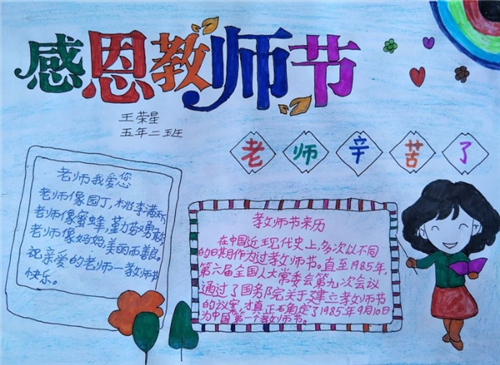 感恩教师节
王荣星
五年二班
老师辛苦了
老师我爱您
老师像园丁,桃李满
老师像蜜蜂,勤劳勇敢
老师像妈妈,美丽而善良。
祝亲爱的老师一教师节
快乐。
教师节来历
在中国近现代史上,多次以不同
的日期作为过教师节。直至1985年,
第六届全国人大常委会第九次会议
通过了国务院关于建立教师节
的议案,才真正确定了1985年9月10日
为中国第一个教师节。